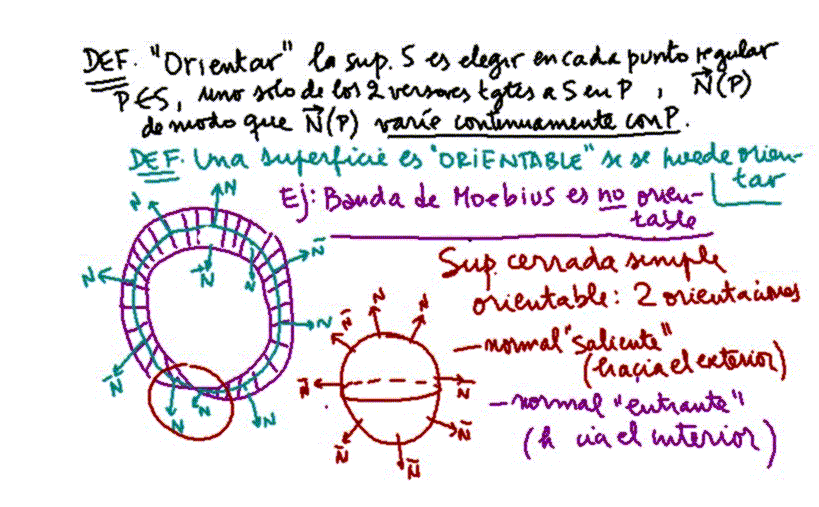 DEF. "Orientar" la sup. S es elegir en cada punto regular
P∈S, uno solo de los 2 versores tgtes a S en P , N⃗(P)
de modo que N⃗(P) varíe continuamente con P.
DEF. Una superficie es "ORIENTABLE" si se puede orien-
tar
Ej: Banda de Moebius es no orien-
table
Sup. cerrada simple
orientable: 2 orientaciones
—normal "saliente"
(hacia el exterior)
—normal "entrante"
(h cia el interior)
N
N
N
N
N
N̄
N
N̄
N
N
N
N
N̄
N
N
N̄
N
N̄
N̄
N̄